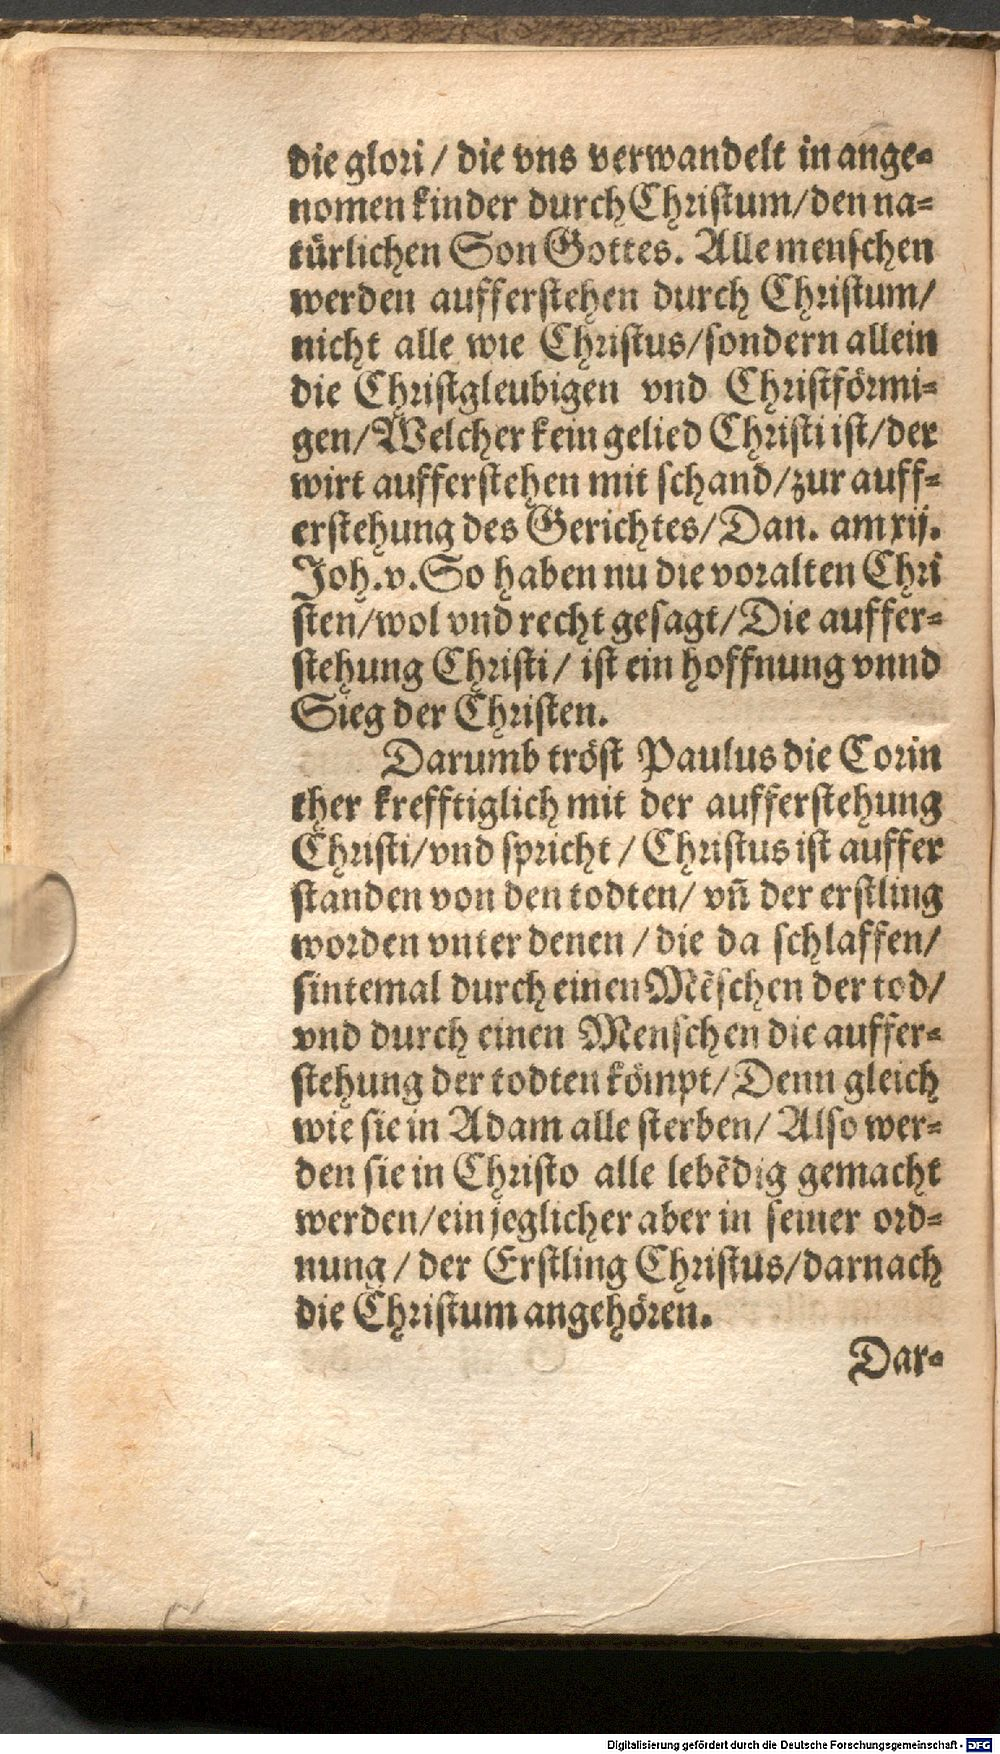 die glori / die vns verwandelt in ange-
nomen kinder durch Christum/den na-
türlichen Son Gottes. Alle menschen
werden aufferstehen durch Christum/
nicht alle wie Christus/sondern allein
die Christgleubigen vnd Christförmi-
gen/Welcher kein gelied Christi ist/der
wirt aufferstehen mit schand/zur auff-
erstehung des Gerichtes/Dan. am xij.
Joh.v.So haben nu die voralten Chri
sten/wol vnd recht gesagt/Die auffer-
stehung Christi/ ist ein hoffnung vnnd
Sieg der Christen.
Darumb tröst Paulus die Corin
ther krefftiglich mit der aufferstehung
Christi/vnd spricht / Christus ist auffer
standen von den todten/ vñ der erstling
worden vnter denen / die da schlaffen/
sintemal durch einen Mẽschen der tod/
vnd durch einen Menschen die auffer-
stehung der todten kömpt/Denn gleich
wie sie in Adam alle sterben/ Also wer-
den sie in Christo alle lebẽdig gemacht
werden/ein jeglicher aber in seiner ord-
nung / der Erstling Christus/darnach
die Christum angehören.
Dar-
Digitalisierung gefördert durch die Deutsche Forschungsgemeinschaft - DFG